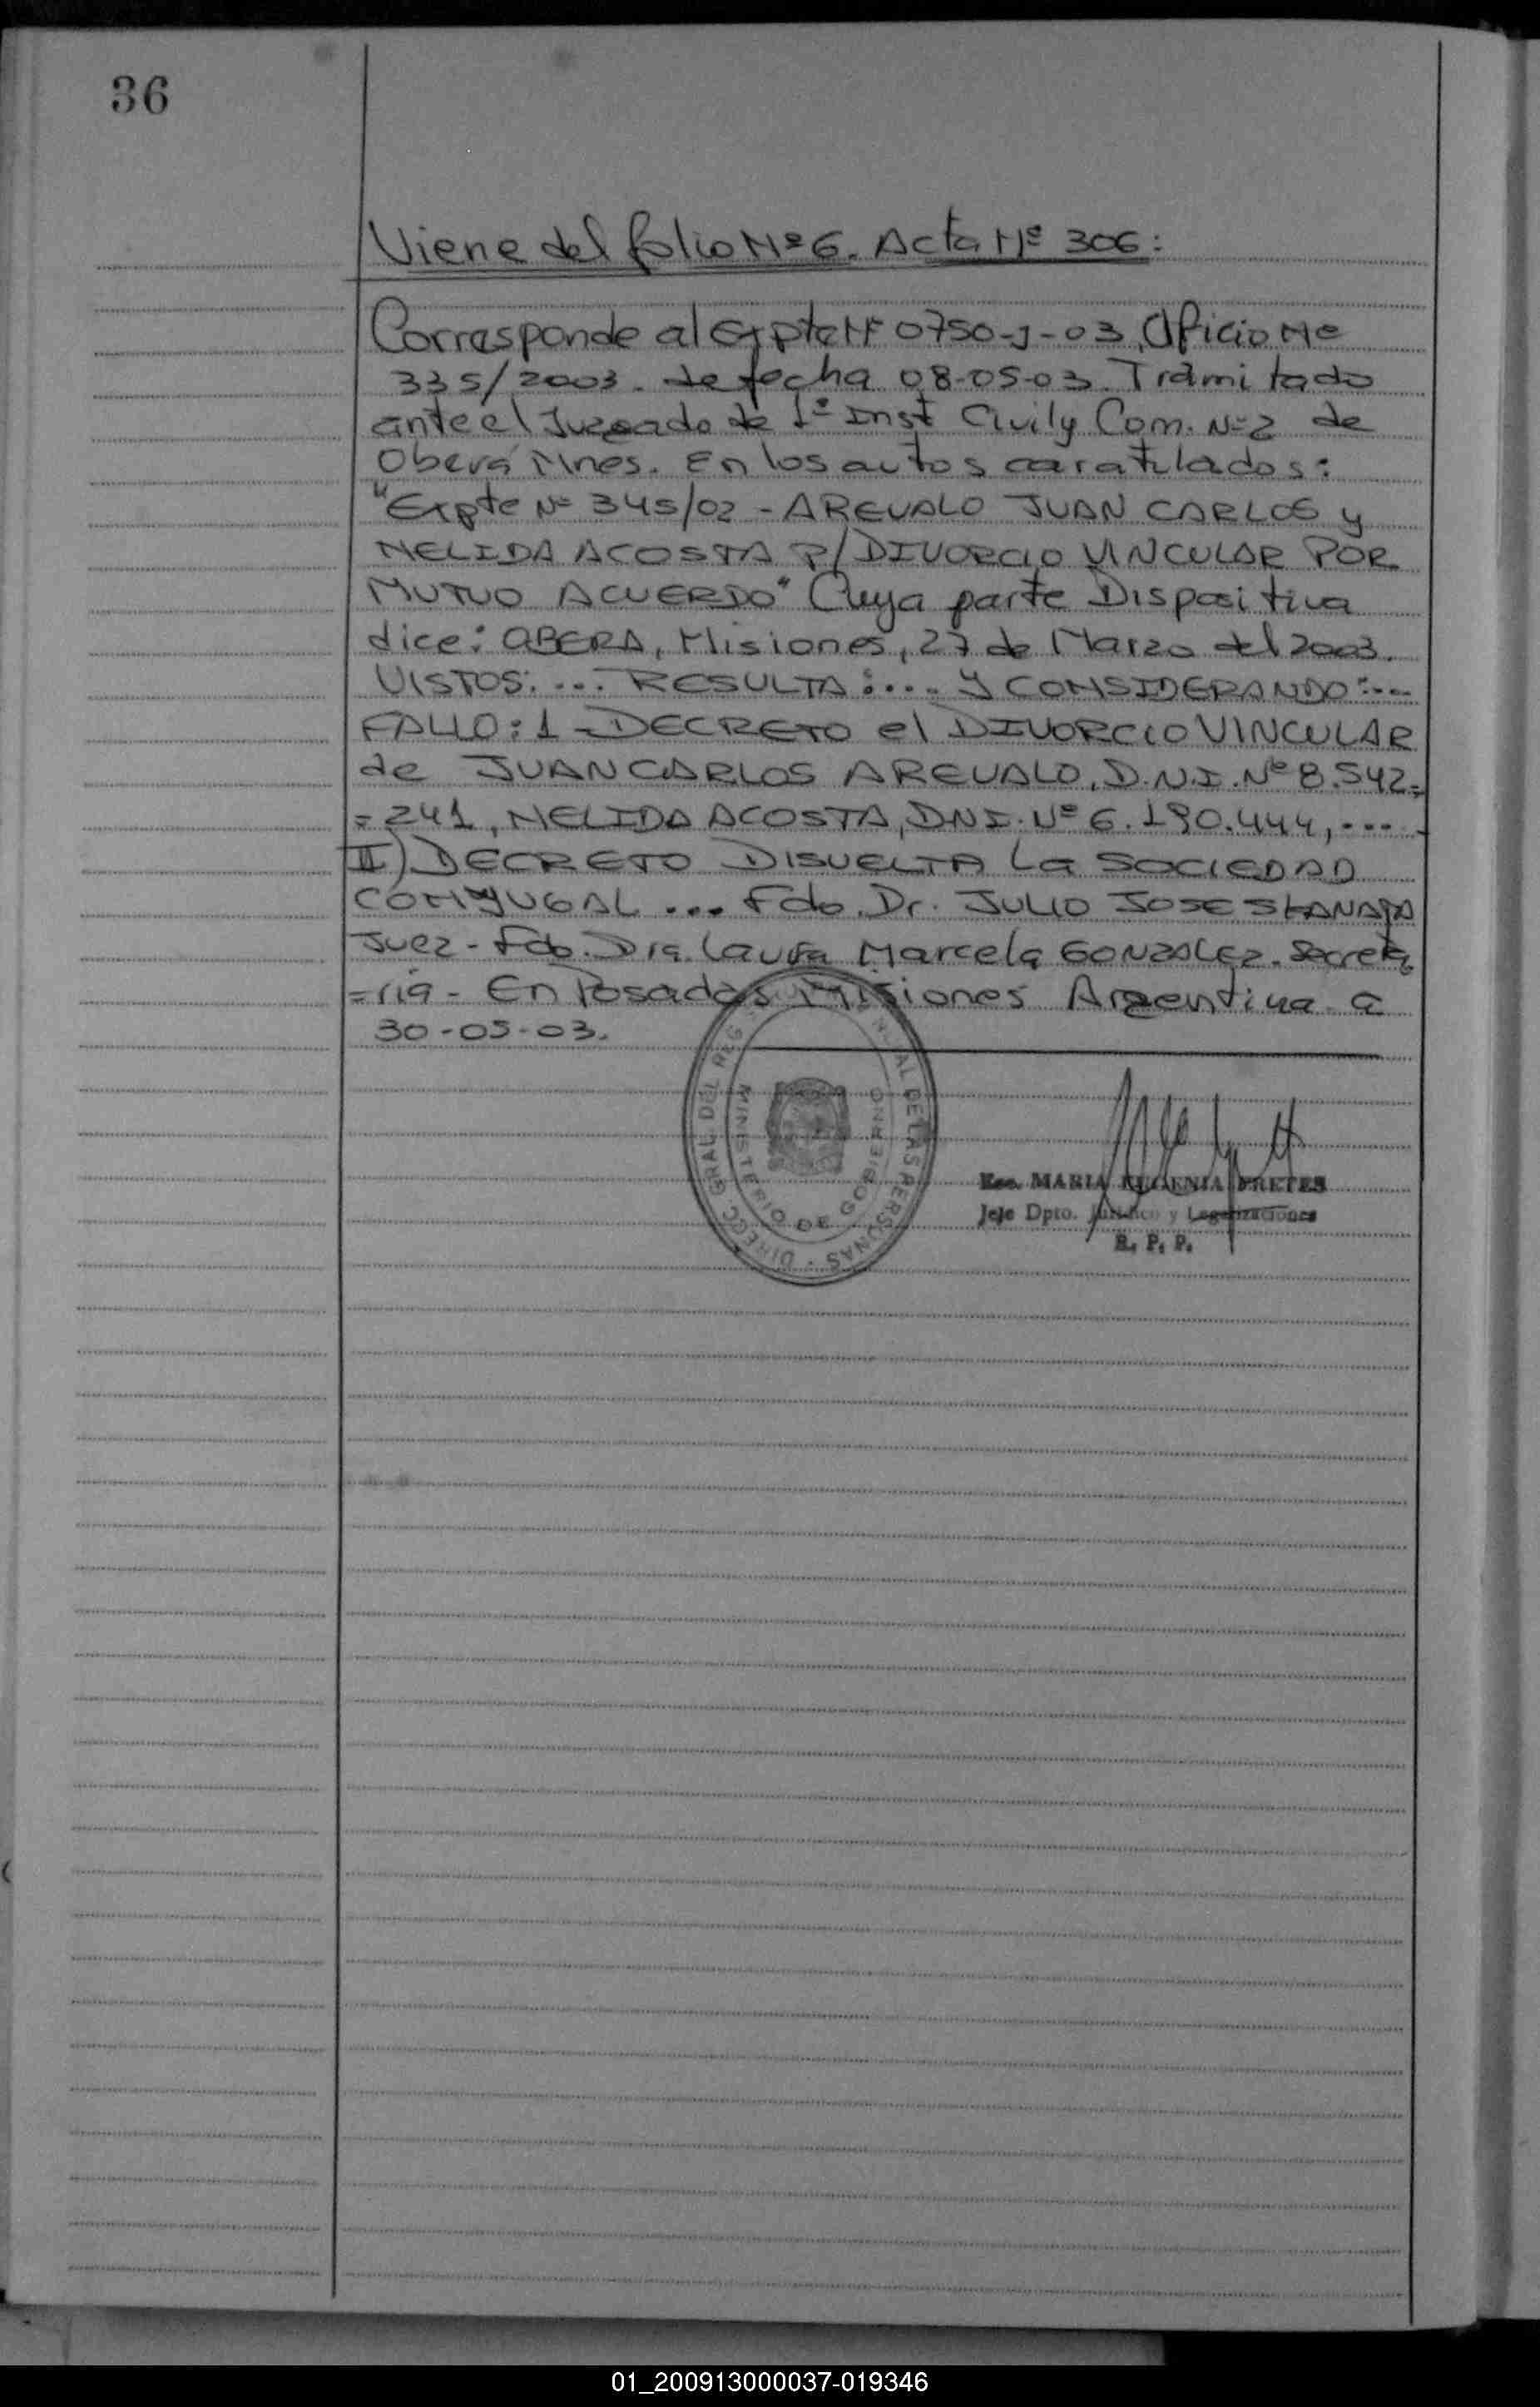 36
Viene del folio Nº 6. Acta Nº 306:
Corresponde al Expte Nº 0750-J-03, Oficio Nº
335/2003. de fecha 08-05-03. Tramitado
ante el Juzgado de 1ª Inst Civil y Com. Nº 2 de
Oberá Mnes. En los autos caratulados:
"Expte Nº 345/02 - AREVALO JUAN CARLOS y
NELIDA ACOSTA P/DIVORCIO VINCULAR POR
MUTUO ACUERDO" Cuya parte Dispositiva
dice: OBERA, Misiones, 27 de Marzo del 2003.
VISTOS: ... RESULTA: .... y CONSIDERANDO: ...
FALLO: 1 - DECRETO el DIVORCIO VINCULAR
de JUAN CARLOS AREVALO, D.N.I. Nº 8.542.=
=241, NELIDA ACOSTA, DNI. Nº 6.190.444, .... -
II) DECRETO DISUELTA La SOCIEDAD
CONYUGAL ... Fdo. Dr. JULIO JOSE
Juez - Fdo. Dra. Laura Marcela GONZALEZ. Secreta
=ria - En Posadas Misiones Argentina a
30-05-03.
DIRECC. GRAL. DEL REG. DE LAS PERSONAS
MINISTERIO DE GOBIERNO
Esc. MARIA EUGENIA PRETES
Jefe Dpto. Jurídico y Legalizaciones
R. P. P.
01_200913000037-019346